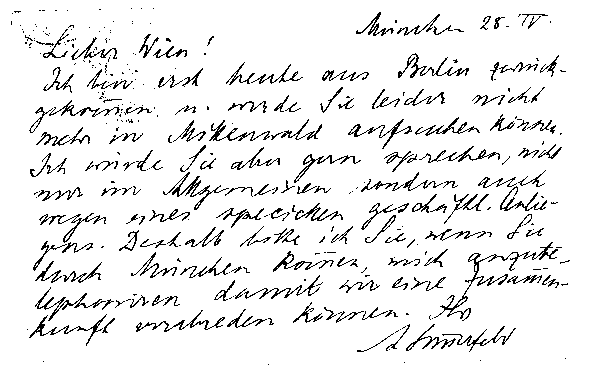 München 28. IV.
Lieber Wien!
Ich bin erst heute aus Berlin zurück-
gekom̅en u. werde Sie leider nicht
mehr in Mittenwald aufsuchen können.
Ich würde Sie aber gern sprechen, nicht
nur im Allgemeinen sondern auch
wegen eines speciellen geschäftl. Anlie-
gens. Deshalb bitte ich Sie, wenn Sie
durch München kom̅en, mich anzute-
lephonieren damit wir eine Zusam̅en-
kunft verabreden können. Ihr
A Sommerfeld